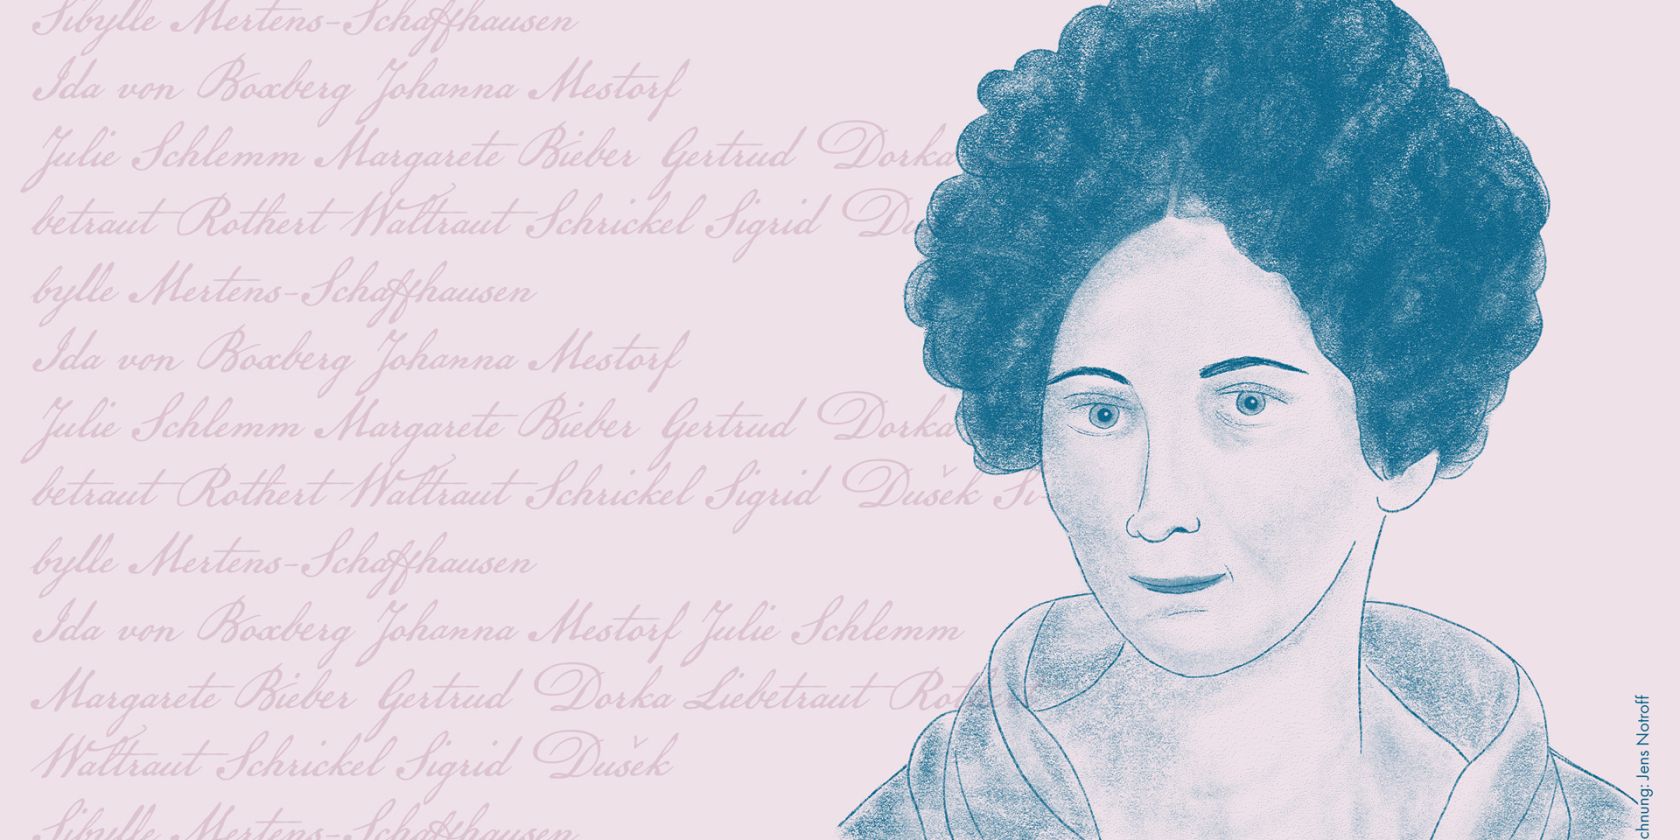 Sibylle Mertens-Schaffhausen
Ida von Boxberg Johanna Mestorf
Julie Schlemm Margarete Bieber Gertrud Dorka
betraut Rothert Waltraut Schrickel Sigrid Du
bylle Mertens-Schaffhausen
Ida von Boxberg Johanna Mestorf
Julie Schlemm Margarete Bieber Gertrud Dorka
betraut Rothert Waltraut Schrickel Sigrid Dušek Si-
bylle Mertens-Schaffhausen
Ida von Boxberg Johanna Mestorf Julie Schlemm
Margarete Bieber Gertrud Dorka Liebetraut Rot
Waltraut Schrickel Sigrid Dušek
Sibylle Mertens-Schaffhausen
chnung: Jens Notroff